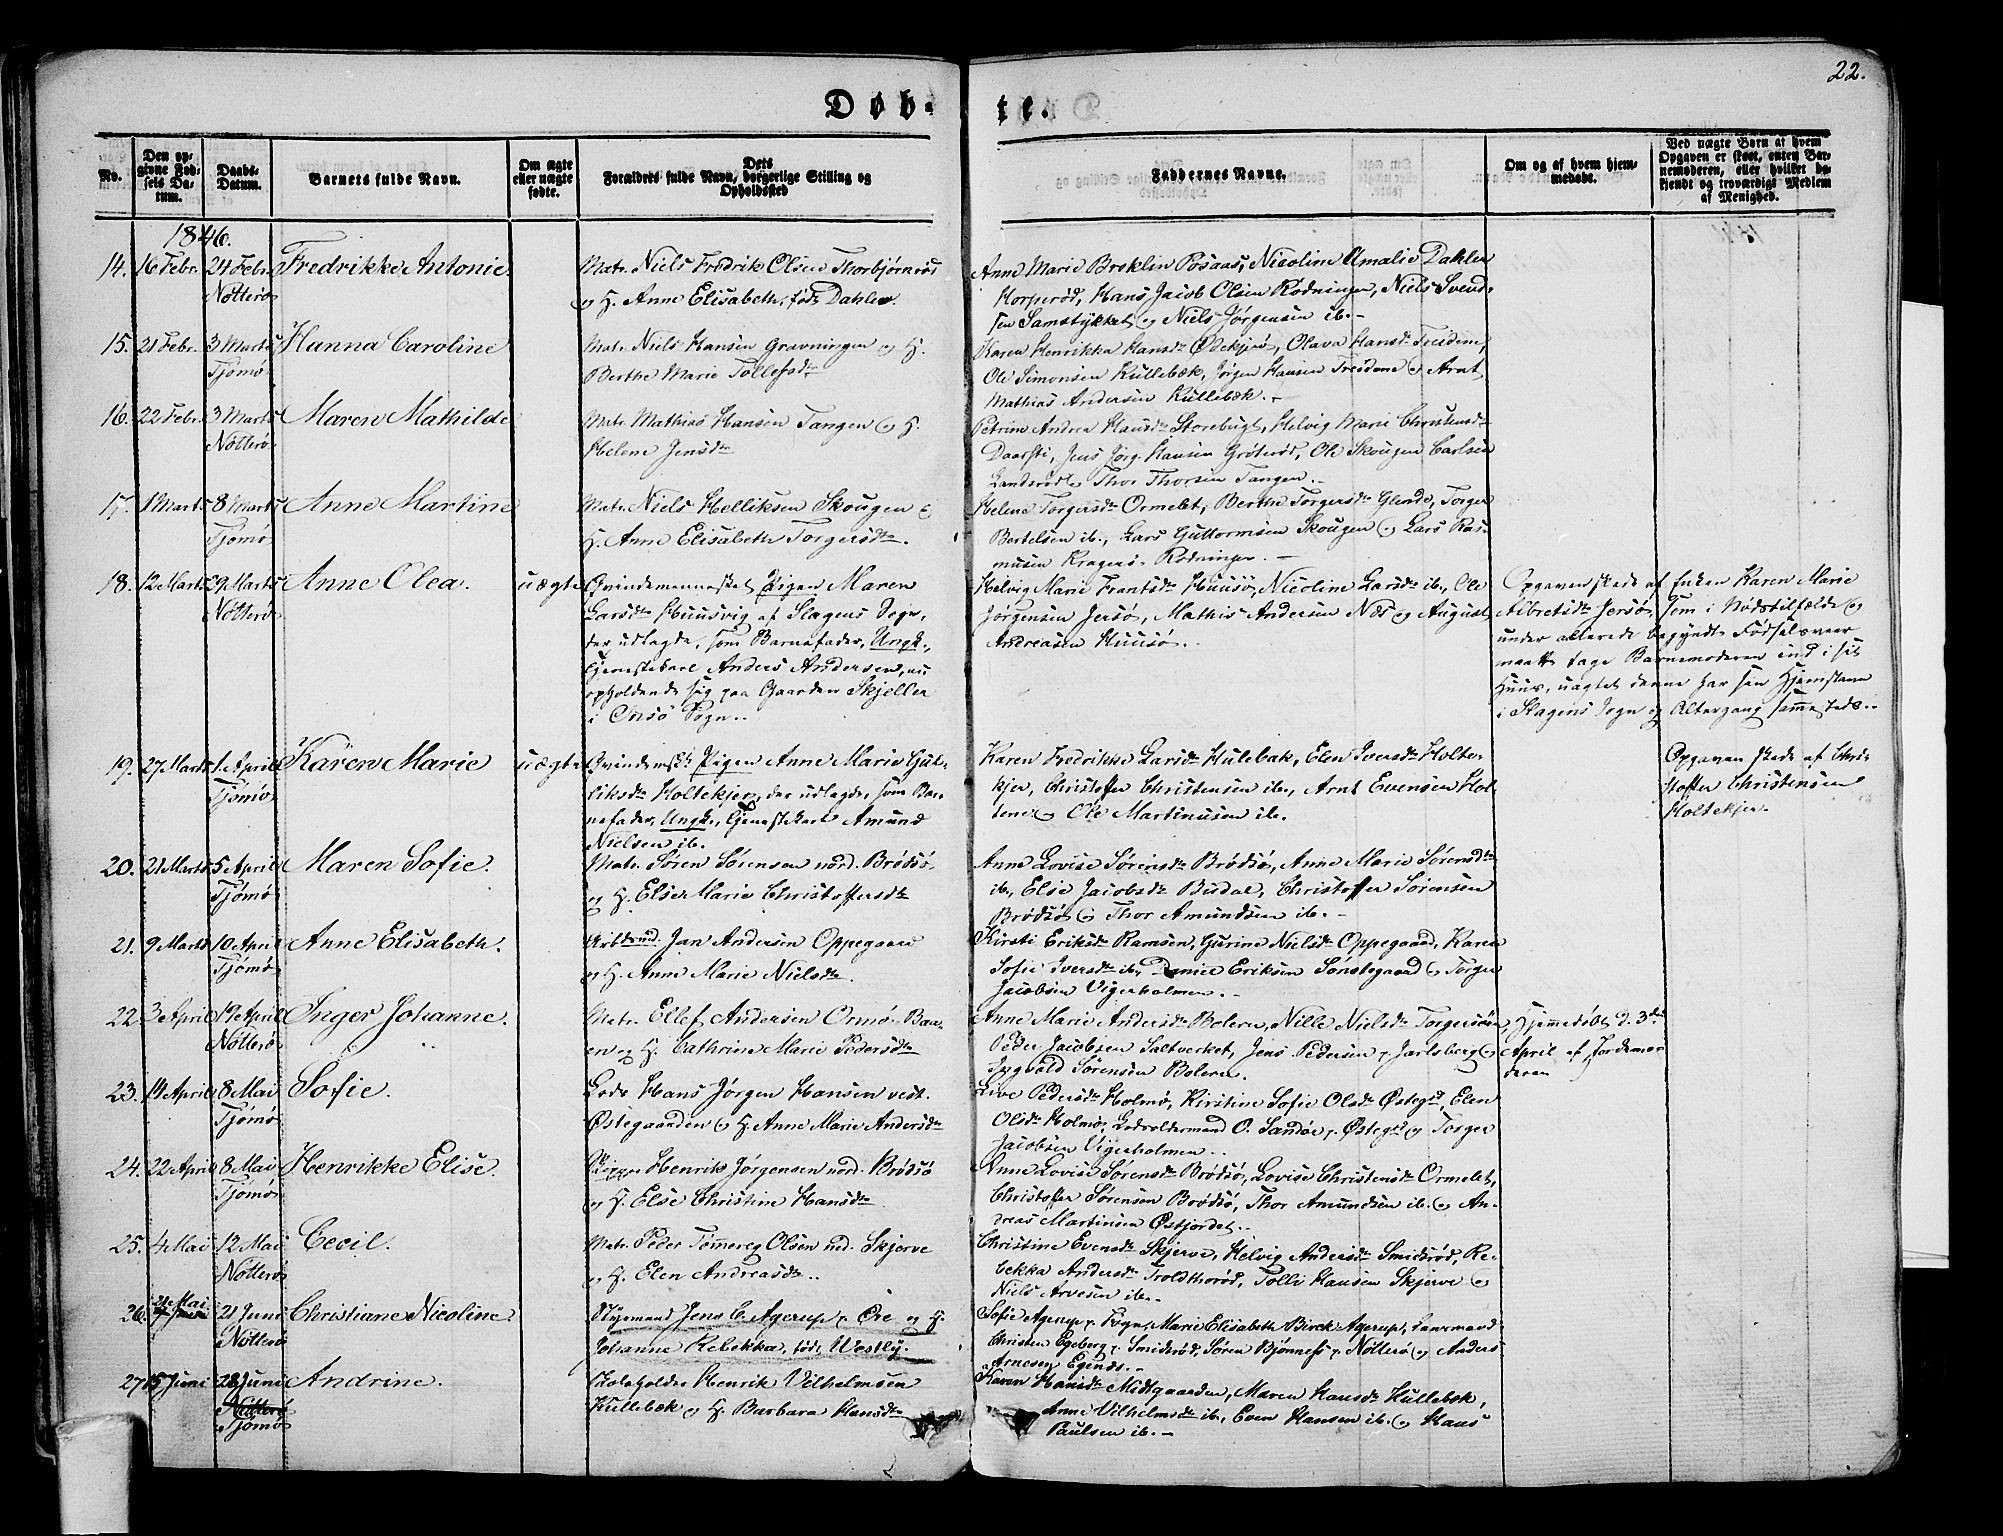 22.
Døb-
te.
No.
Den op-
givne Fød-
sels Da-
tum.
Daabs-
Datum.
Barnets fulde Navn.
Om ægte
eller uægte
fødte.
Dets
Forældres fulde Navn, borgerlige Stilling og
Opholdssted
Faddernes Navne.
Om og af hvem hjem-
medøbt.
Ved uægte Børn at hvem
Opgaven er skeet, enten Bar-
nemoderen, eller hvilket be-
kjendt og troværdigt Medlem
af Menighed.
1846.
14. 16 Febr. 24 Febr. Fredrikke Antonie
Nøtterø
Matr. Niels Fredrik Olsen Thorbjørnrød
og H. Anne Elisabeth, født Dahler.
Anne Marie Posaas, Nicoline Amalie Dahler
Korperød, Hans Jacob Olsen Rødningen, Niels Svend-
sen Samstykket og Niels Jørgensen ib.
15. 21 Febr. 3 Marts Hanna Caroline
Tjømø
Matr. Niels Hansen Gravningen og H.
Berthe Marie Tollefsdtr
Karen Henrikka Hansdtr Ødekjær, Olava Hansdtr Treidene,
Ole Simonsen Kullebæk, Jørgen Hansen Treidene og Arnt
Mathias Andersen Kullebæk.
16. 22 Febr. 3 Marts Maren Mathilde
Nøtterø
Matr. Mathias Hansen Tangen og H.
Helene Jensdtr
Petrine Andrea Hansdtr Storebugt, Helvig Marie Christensdtr
Jens Jørg. Hansen Grøterød, Ole Skougen Carlsen
Thor Thorsen Tangen.
17. 1 Marts 8 Marts Anne Martine
Tjømø
Matr. Niels Helliksen Skougen og
H. Anne Elisabeth Torgersdtr.
Helene Torgersdtr Ormelet, Berthe Torgersdtr Torger
Bertelsen ib., Lars Guttormsen Skougen og Lars Ras-
musen Rødningen.
18. 12 Marts 29 Marts Anne Olea. uægte
Nøtterø
Qvindemennesket Pigen Maren
Larsdtr Huusvig af Slagens Sogn,
der udlagde, som Barnefader, Ungk.,
Tjenestekarl Anders Andersen, nu
opholdende sig paa Gaarden Skjeller
i Onsø Sogn.
Helvig Marie Frantsdtr Huusø, Nicoline Larsdtr ib., Ole
Jørgensen Jersø, Mathis Andersen Næs og August
Andreasen Huusø.
Opgaven skede af Enken Karen Marie
Albretsdtr Jersø, som i Nødstilfælde og
under allerede begyndt Fødselsveer
maatte tage Barnemoderen ind i sit
Huus, uagtet denne har sin Hjemstavn
i Slagens Sogn og Altergang sammesteds.
19. 27 Marts 1 April Karen Marie uægte
Tjømø
Qvindemsk. Pigen Anne Marie Gul-
liksdtr Holtekjær, der udlagde, som Bar-
nefader, Ungk., Tjenestekarl Amund
Nielsen ib.
Karen Fredrikke Larsdtr Hulebak, Elen Iversdtr Holte-
kjær, Christoffer Christensen ib., Arnt Evensen Hol-
tene og Ole Martinusen ib.
Opgaven skede af Chri-
stoffer Christensen
Holtekjær.
20. 21 Marts 5 April Maren Sofie.
Tjømø
Matr. Søren Sørensen nord. Brødsø
og H. Else Marie Christoffersdtr
Anne Lovise Sørensdtr Brødsø, Anne Marie Sørensdtr
ib., Else Jacobsdtr Budal, Christoffer Sørensen
Brødsø og Thor Amundsen ib.
21. 9 Marts 10 April Anne Elisabeth.
Tjømø
Arbdsmd. Jan Andersen Oppegaard
og H. Anne Marie Nielsdtr.
Kirsti Eriksdtr Ramsen, Gurine Nielsdtr Oppegaard, Karen
Sofie Iversdtr ib., Daniel Eriksen Sønstegaard og Torger
Jacobsen Vigerholmen.
22. 3 April 19 April Inger Johanne.
Nøtterø
Matr. Ellef Andersen Ormø Baa-
en og H. Cathrine Marie Pedersdtr
Anne Marie Andersdtr Bolern, Nille Nielsdtr Torgersøen,
Peder Jacobsen Saltverket, Jens Pedersen p. Jarlsberg og
Ingvald Sørensen Bolern.
Hjemmedøbt d. 3die
April af Jordemo-
deren
23. 14 April 8 Mai Sofie.
Tjømø
Lods Hans Jørgen Hansen vest.
Østegaarden og H. Anne Marie Andersdtr
Live Pedersdtr Holmø, Kirstine Sofie Olsdtr Østegd, Elen
Olsdtr Holmø, Lodsoldermand O. Sandøe p. Østegd og Torger
Jacobsen Vigerholmen.
24. 22 April 8 Mai Henrikke Elise.
Tjømø
Skipper Henrik Jørgensen nord. Brødsø
og H. Else Christine Hansdtr
Anne Lovise Sørensdtr Brødsø, Lovise Christensdtr Ormelet,
Christoffer Sørensen Brødsø, Thor Amundsen ib. og An-
dreas Martinsen Østfjordet.
25. 4 Mai 12 Mai Cecil.
Nøtterø
Matr. Peder Tømmereg Olsen ned. Skjerve
og H. Elen Andreasdtr.
Christine Evensdtr Skjerve, Helvig Andersdtr Smidsrød, Re-
bekka Andersdtr Troldthorød, Tolle Hansen Skjerve og
Niels Arvesen ib.
26. 21 Juni Christiane Nicoline
Nøtterø
Styrmand Jens C. Agerup p. Øre og H.
Johanne Rebekka, født Westly.
Sofie Agerup p. Fogn, Marie Elisabeth Birck Agerup, Lensmand
Christen Egeberg p. Smidsrød, Søren Bjønness p. Nøtterø og Anders
Arnesen Egends.
27 15 Juni 28 Juni Andrine.
Nøtterø
Tjømø
Skoleholder Henrik Vilhelmsen
Kullebæk og H. Barbara Hansdtr
Karen Hansdtr Midtgaarden, Maren Hansdtr Hullebæk,
Anne Vilhelmsdtr ib., Even Hansen ib. og Hans
Paulsen ib.